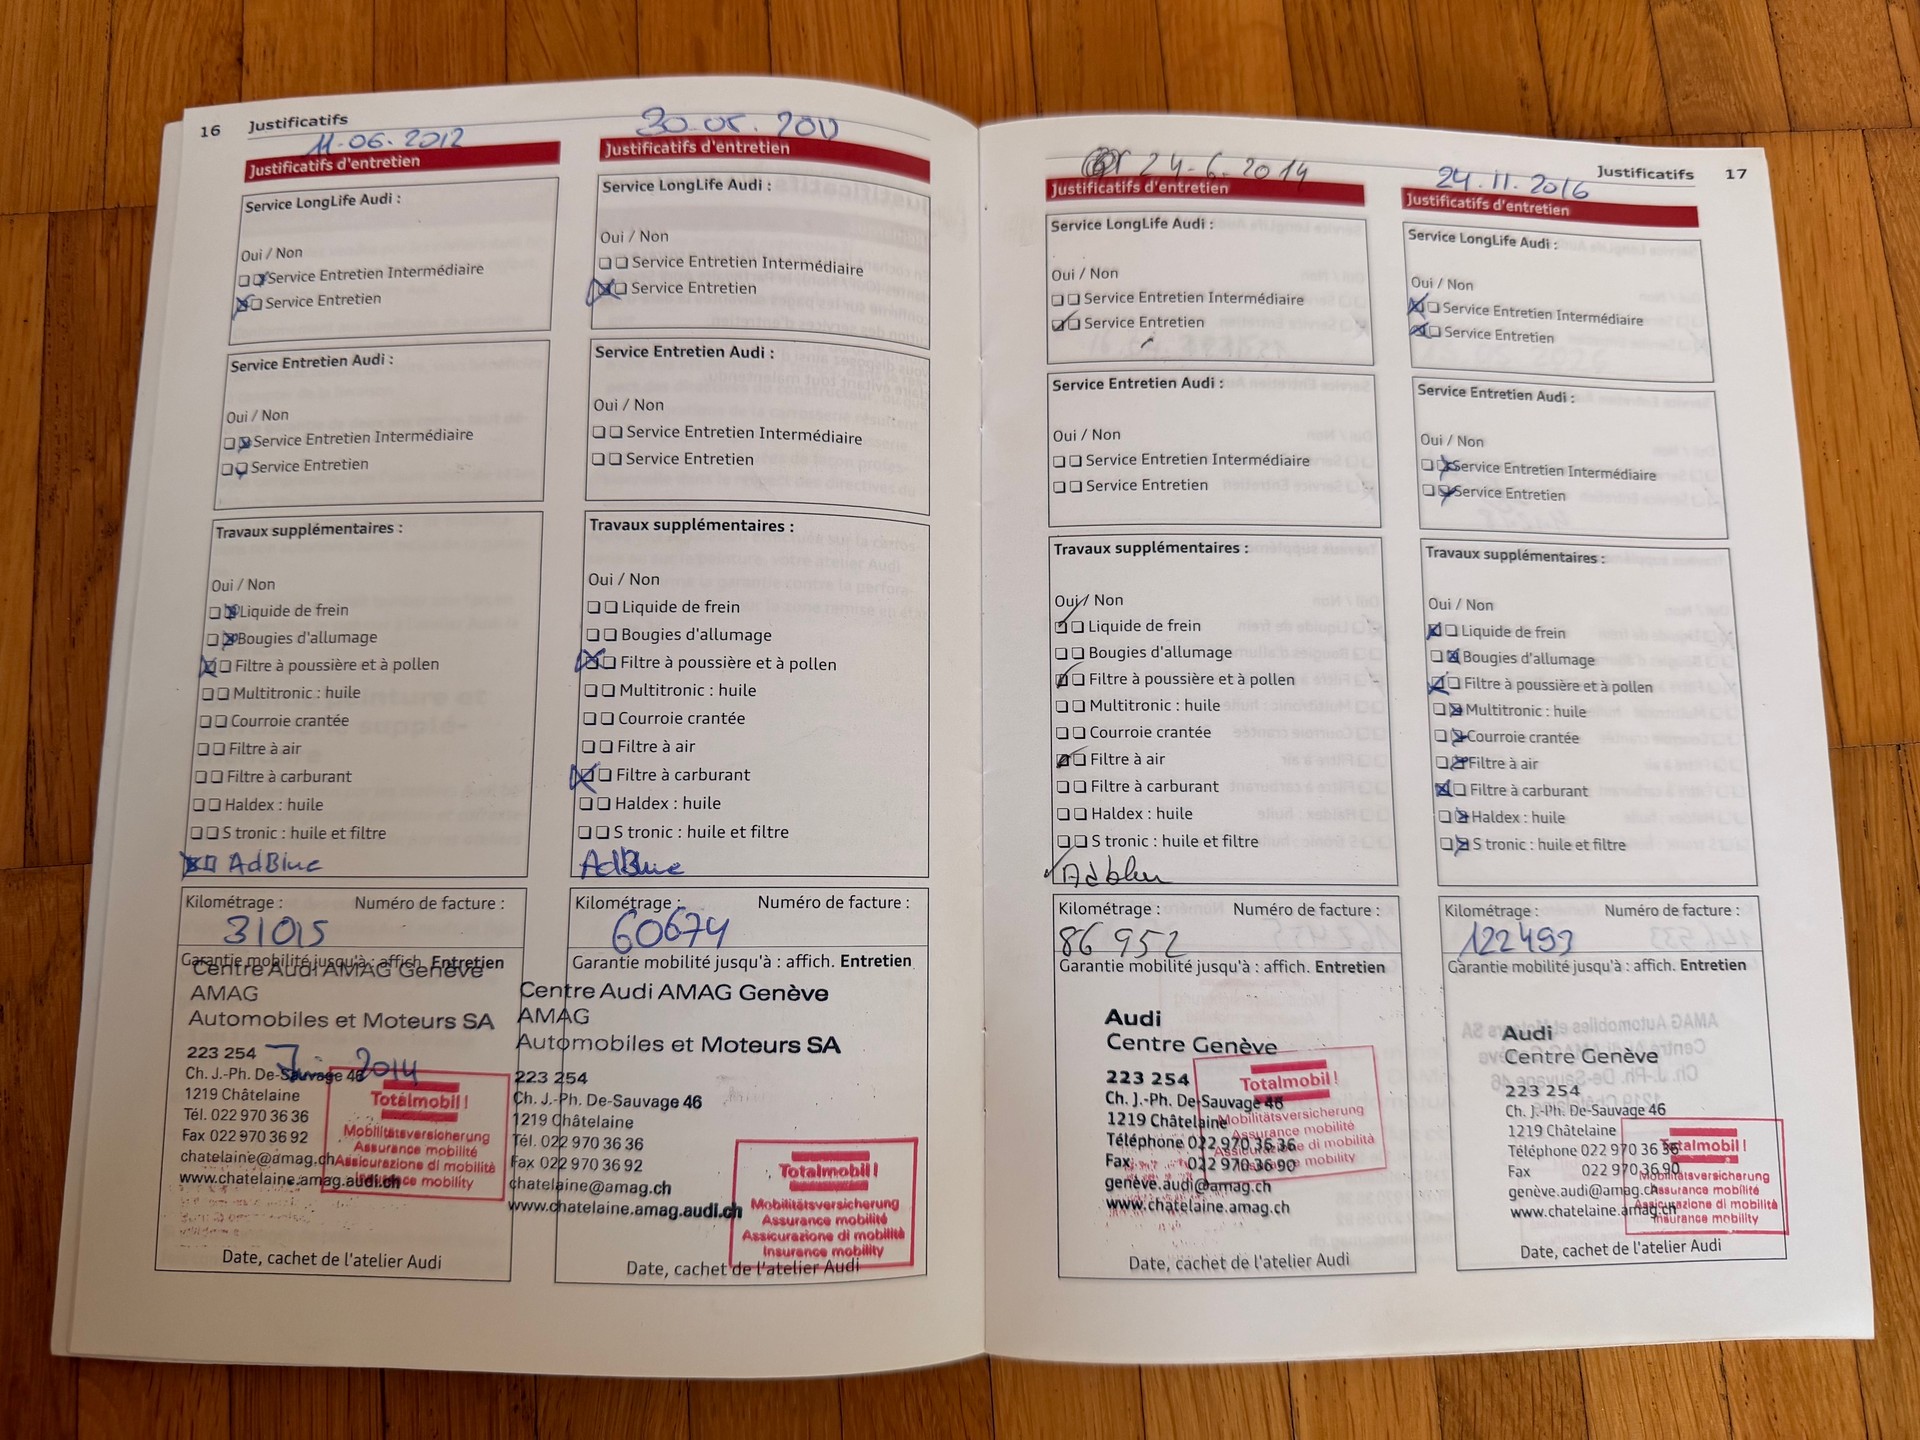 16 Justificatifs
11-06.2012
Justificatifs d'entretien
Service LongLife Audi :
Oui / Non
Service Entretien Intermédiaire
Service Entretien
Service Entretien Audi :
Oui / Non
Service Entretien Intermédiaire
Service Entretien
Travaux supplémentaires :
Oui / Non
Liquide de frein
Bougies d'allumage
Filtre à poussière et à pollen
Multitronic : huile
Courroie crantée
Filtre à air
Filtre à carburant
Haldex : huile
S tronic : huile et filtre
AdBlue
Kilométrage : Numéro de facture :
31015
Garantie mobilité jusqu'à : affich. Entretien
Centre Audi AMAG Genève
AMAG
Automobiles et Moteurs SA
223 254
2014
Ch. J.-Ph. De-Sauvage 46
1219 Châtelaine
Tél. 022 970 36 36
Fax 022 970 36 92
chatelaine@amag.ch
www.chatelaine.amag.audi.ch
Totalmobil !
Mobilitätsversicherung
Assurance mobilité
Assicurazione di mobilità
Insurance mobility
Date, cachet de l'atelier Audi
Justificatifs d'entretien
Service LongLife Audi :
Oui / Non
Service Entretien Intermédiaire
Service Entretien
Service Entretien Audi :
Oui / Non
Service Entretien Intermédiaire
Service Entretien
Travaux supplémentaires :
Oui / Non
Liquide de frein
Bougies d'allumage
Filtre à poussière et à pollen
Multitronic : huile
Courroie crantée
Filtre à air
Filtre à carburant
Haldex : huile
S tronic : huile et filtre
AdBlue
Kilométrage : Numéro de facture :
60674
Garantie mobilité jusqu'à : affich. Entretien
Centre Audi AMAG Genève
AMAG
Automobiles et Moteurs SA
223 254
Ch. J.-Ph. De-Sauvage 46
1219 Châtelaine
Tél. 022 970 36 36
Fax 022 970 36 92
chatelaine@amag.ch
www.chatelaine.amag.audi.ch
Totalmobil !
Mobilitätsversicherung
Assurance mobilité
Assicurazione di mobilità
Insurance mobility
Date, cachet de l'atelier Audi
Justificatifs 17
24-6.2014
Justificatifs d'entretien
Service LongLife Audi :
Oui / Non
Service Entretien Intermédiaire
Service Entretien
Service Entretien Audi :
Oui / Non
Service Entretien Intermédiaire
Service Entretien
Travaux supplémentaires :
Oui / Non
Liquide de frein
Bougies d'allumage
Filtre à poussière et à pollen
Multitronic : huile
Courroie crantée
Filtre à air
Filtre à carburant
Haldex : huile
S tronic : huile et filtre
Adbleu
Kilométrage : Numéro de facture :
86 952
Garantie mobilité jusqu'à : affich. Entretien
Audi
Centre Genève
223 254
Ch. J.-Ph. De-Sauvage 46
1219 Châtelaine
Téléphone 022 970 36 36
Fax 022 970 36 90
genève.audi@amag.ch
www.chatelaine.amag.ch
Totalmobil !
Mobilitätsversicherung
Assurance mobilité
Assicurazione di mobilità
Insurance mobility
Date, cachet de l'atelier Audi
24.11.2016
Justificatifs d'entretien
Service LongLife Audi :
Oui / Non
Service Entretien Intermédiaire
Service Entretien
Service Entretien Audi :
Oui / Non
Service Entretien Intermédiaire
Service Entretien
Travaux supplémentaires :
Oui / Non
Liquide de frein
Bougies d'allumage
Filtre à poussière et à pollen
Multitronic : huile
Courroie crantée
Filtre à air
Filtre à carburant
Haldex : huile
S tronic : huile et filtre
Kilométrage : Numéro de facture :
122493
Garantie mobilité jusqu'à : affich. Entretien
Audi
Centre Genève
223 254
Ch. J.-Ph. De-Sauvage 46
1219 Châtelaine
Téléphone 022 970 36 36
Fax 022 970 36 90
genève.audi@amag.ch
www.chatelaine.amag.ch
Totalmobil !
Mobilitätsversicherung
Assurance mobilité
Assicurazione di mobilità
Insurance mobility
Date, cachet de l'atelier Audi